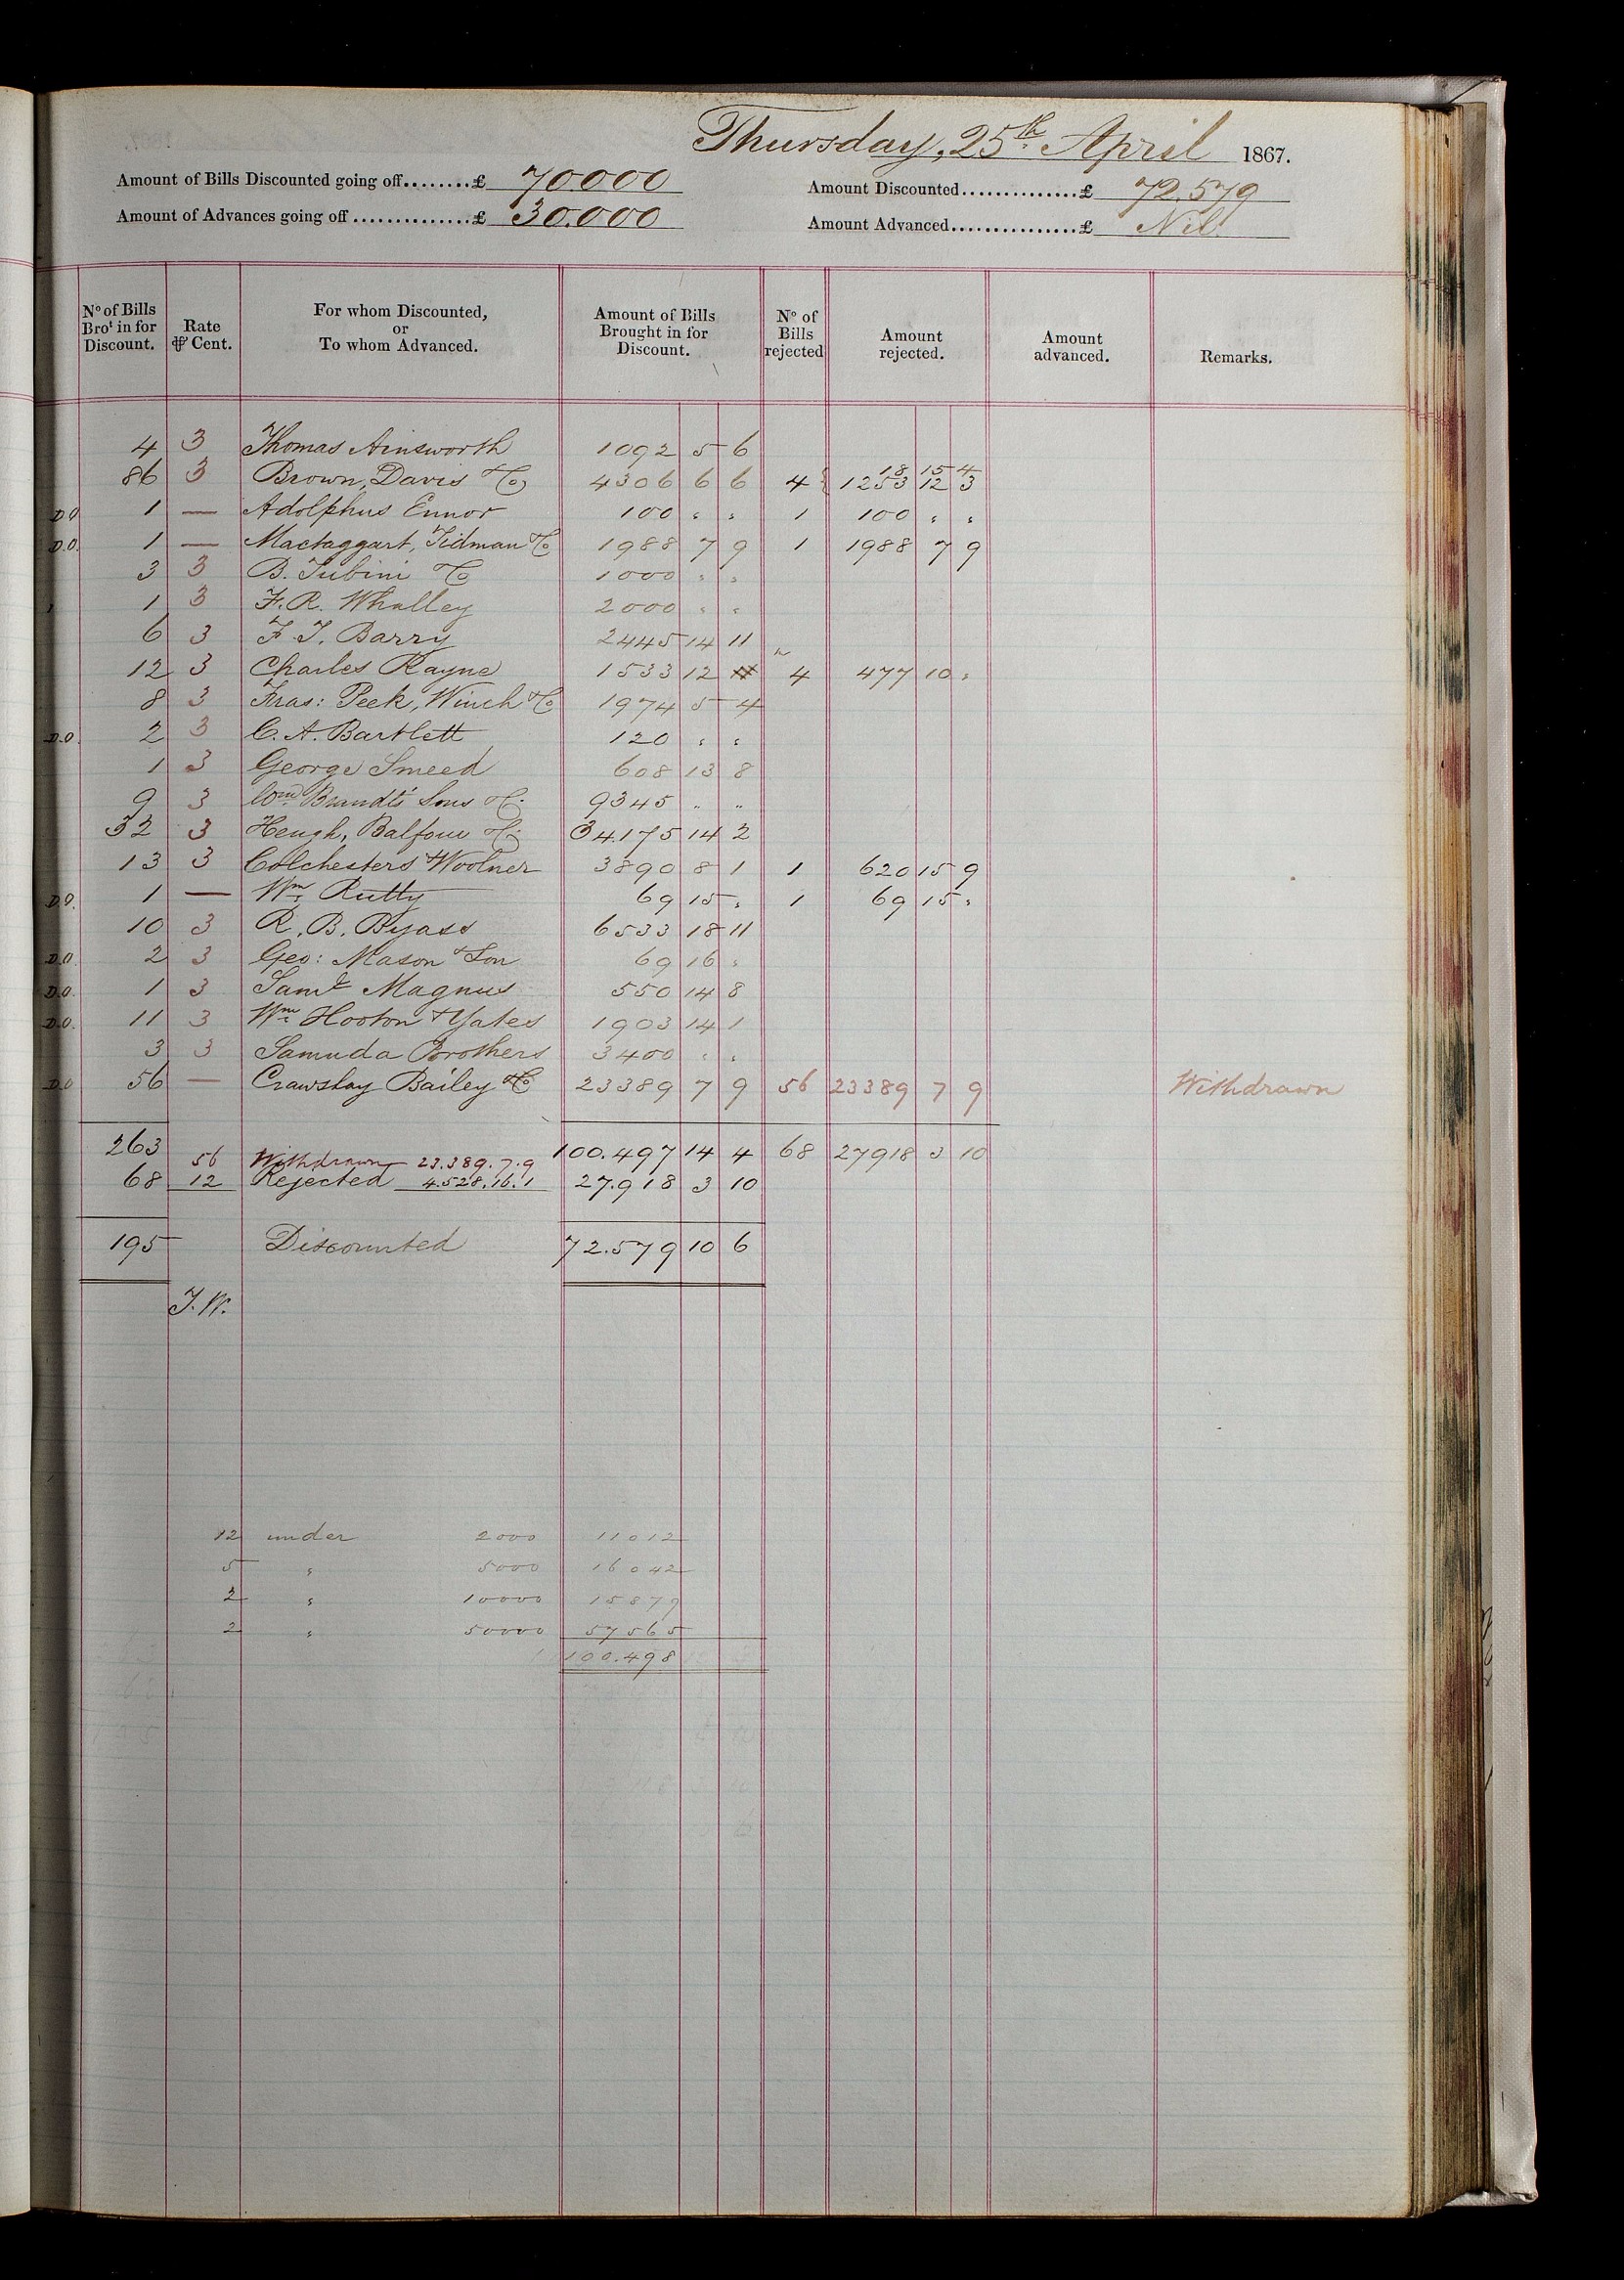 Thursday, 25th April 1867.
Amount of Bills Discounted going off........£ 70000 Amount Discounted..............£ 72.579
Amount of Advances going off...............£ 30.000 Amount Advanced...............£ Nil
No of Bills Brot in for Discount. Rate ⅌ Cent. For whom Discounted, or To whom Advanced. Amount of Bills Brought in for Discount. No of Bills rejected Amount rejected. Amount advanced. Remarks.
4 3 Thomas Ainsworth 1092 5 6
18 15 4
86 3 Brown, Davis & Co 4306 6 6 4 1253 12 3
D.O. 1 — Adolphus Ennor 100 " " 1 100 " "
D.O. 1 — Mactaggart, Tidman & Co 1988 7 9 1 1988 7 9
3 3 B. Tubini & Co 1000 " "
1 3 F. R. Whalley 2000 " "
6 3 F. T. Barry 2445 14 11
12 3 Charles Rayne 1533 12 " 4 477 10 "
8 3 Fras: Peek, Winch & Co 1974 5 4
D.O. 2 3 C. A. Bartlett 120 " "
1 3 George Smeed 608 13 8
9 3 Wm Brandt's Sons & Co 9345 " "
32 3 Heugh, Balfour & Co 34.175 14 2
13 3 Colchesters & Woolner 3890 8 1 1 620 15 9
D.O. 1 — Wm Rutty 69 15 " 1 69 15 "
10 3 R. B. Byass 6533 18 11
D.O. 2 3 Geo: Mason & Son 69 16 "
D.O. 1 3 Saml Magnus 550 14 8
D.O. 11 3 Wm Hooton & Yates 1903 14 1
3 3 Samuda Brothers 3400 " "
D.O. 56 — Crawshay Bailey & Co 23389 7 9 56 23389 7 9 Withdrawn
263 100.497 14 4 68 27918 3 10
56 Withdrawn 23.389.7.9
68 12 Rejected 4.528.16.1 27.918 3 10
195 Discounted 72.579 10 6
J.W.
12 under 2000 11012
5 " 5000 16042
2 " 10000 15879
2 " 50000 57565
100.498